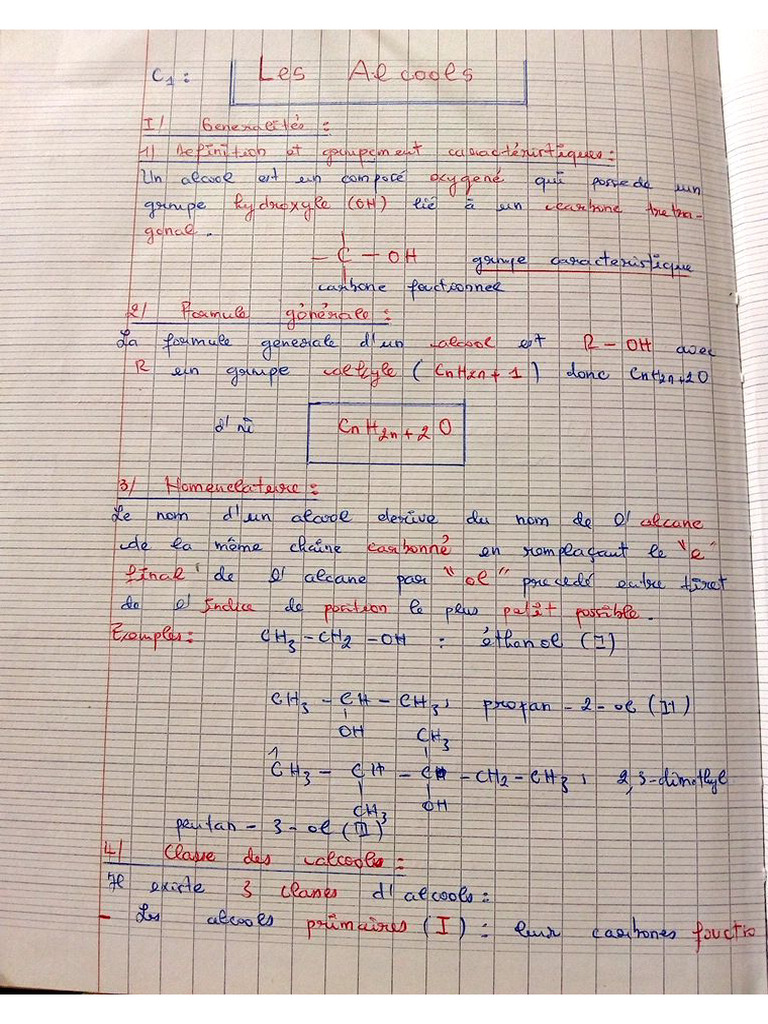 C1 : Les Alcools
I/ Generalités :
1) Definition et groupement caractéristiques :
Un alcool est un composé oxygené qui possede un
groupe hydroxyle (OH) lié à un carbone tetra-
gonal.
– C – OH groupe caracteristique
carbone fonctionnel
2/ Formule générale :
La formule generale d'un alcool est R – OH avec
R un groupe alkyle ( CnH2n+1 ) donc CnH2n+2O
d'où CnH2n+2O
3/ Nomenclature :
Le nom d'un alcool derive du nom de l'alcane
de la même chaîne carbonné en remplaçant le "e"
final de l'alcane par "ol" precedé entre tiret
de l'indice de position le plus petit possible.
Exemples : CH3 – CH2 – OH : éthanol (I)
CH3 – CH – CH3 ; propan – 2 – ol (II)
OH CH3
1
CH3 – CH – C – CH2 – CH3 ; 2,3-dimethyl
CH3 OH
pentan – 3 – ol (III)
4/ Classe des alcools :
Il existe 3 classes d'alcools :
– Les alcools primaires (I) : leur carbones fonctio